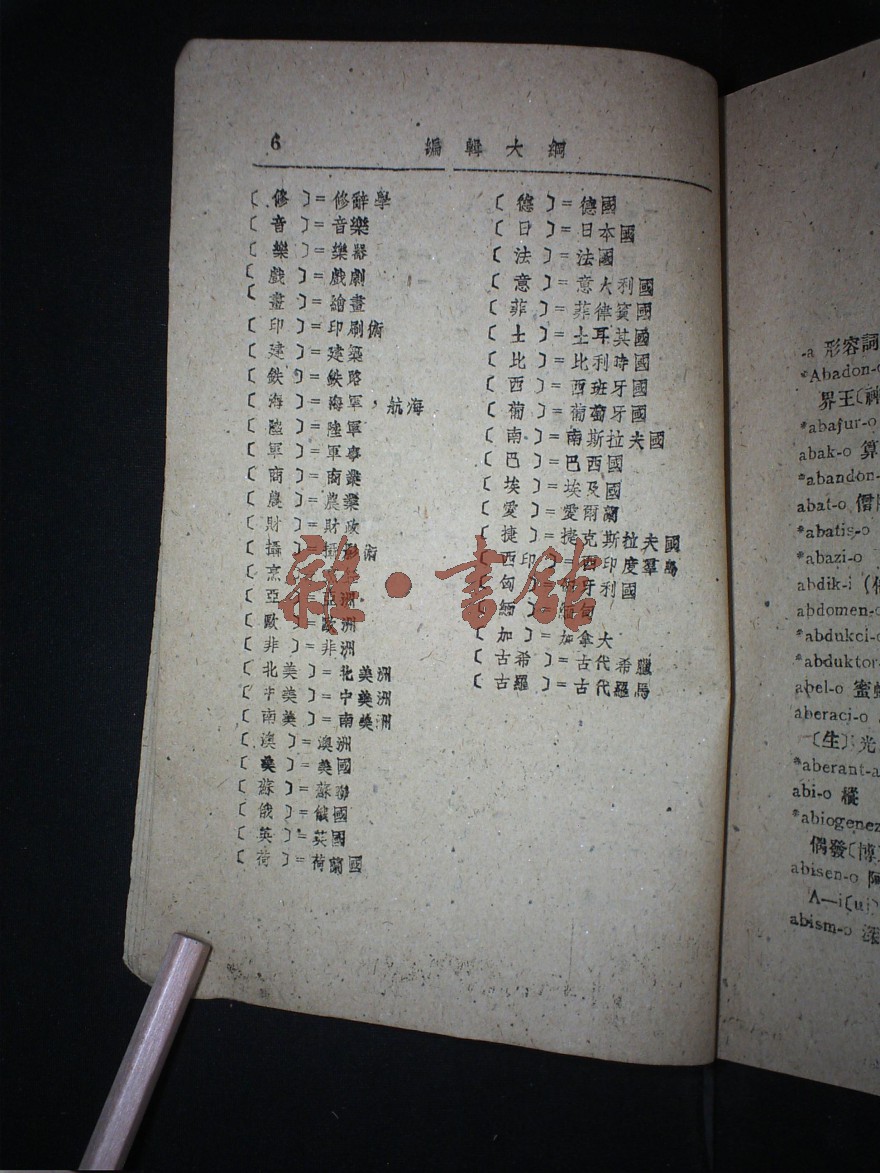 6 編輯大綱
〔修〕=修辭學
〔音〕=音樂
〔樂〕=樂器
〔戲〕=戲劇
〔畫〕=繪畫
〔印〕=印刷術
〔建〕=建築
〔鉄〕=鉄路
〔海〕=海軍，航海
〔陸〕=陸軍
〔軍〕=軍事
〔商〕=商業
〔農〕=農業
〔財〕=財政
〔攝〕=攝影術
〔烹〕=
〔亞〕=亞洲
〔歐〕=歐洲
〔非〕=非洲
〔北美〕=北美洲
〔中美〕=中美洲
〔南美〕=南美洲
〔澳〕=澳洲
〔美〕=美國
〔蘇〕=蘇聯
〔俄〕=俄國
〔英〕=英國
〔荷〕=荷蘭國
〔德〕=德國
〔日〕=日本國
〔法〕=法國
〔意〕=意大利國
〔菲〕=菲律賓國
〔土〕=土耳其國
〔比〕=比利時國
〔西〕=西班牙國
〔葡〕=葡萄牙國
〔南〕=南斯拉夫國
〔巴〕=巴西國
〔埃〕=埃及國
〔愛〕=愛爾蘭
〔捷〕=捷克斯拉夫國
〔西印〕=西印度羣島
〔匈〕=匈牙利國
〔緬〕=緬甸
〔加〕=加拿大
〔古希〕=古代希臘
〔古羅〕=古代羅馬
雜·書館
-a 形容詞
*Abadon-o
界王〔神
*abaĵur-o
abak-o 算
*abandon-
abat-o 僧
*abatis-o
*abazi-o
abdik-i
abdomen-o
*abdukci-o
*abduktor
abel-o 蜜蜂
aberaci-o
〔生〕光
*aberant-a
abi-o 樅
*abiogenez
偶發〔博〕
abisen-o 阿
A—i〔uj〕
abism-o 深